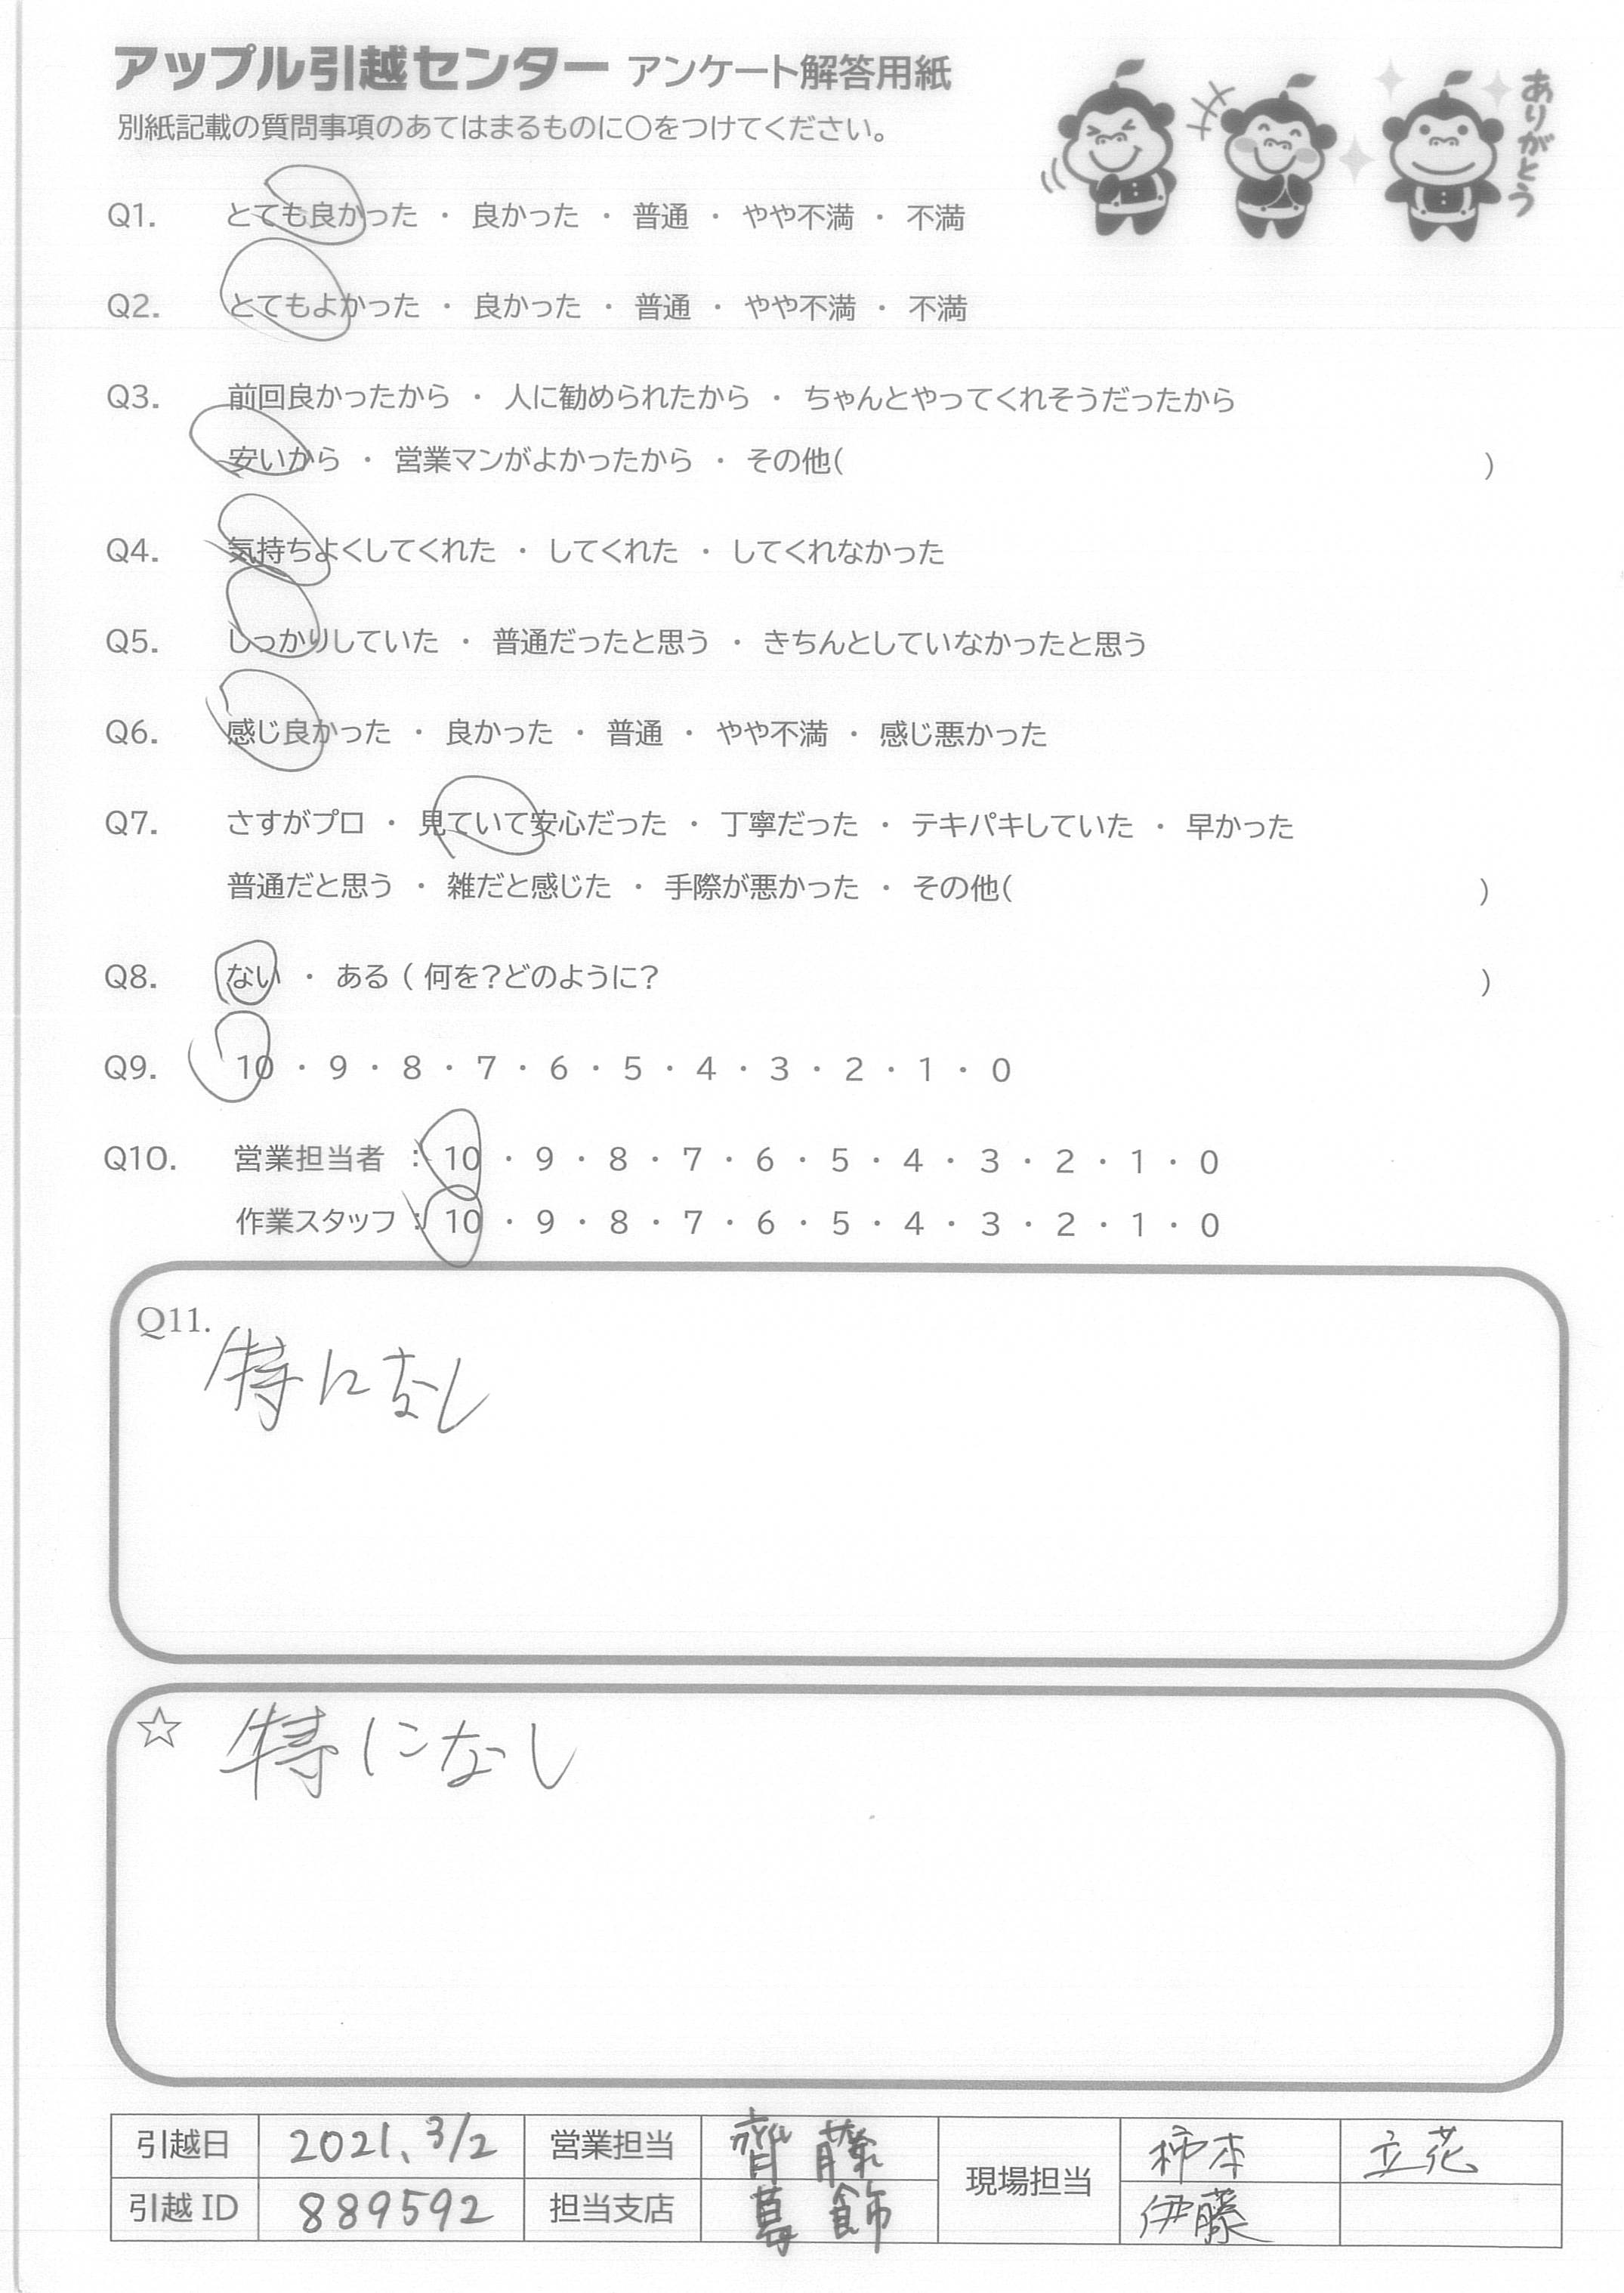 アップル引越センター アンケート解答用紙
別紙記載の質問事項のあてはまるものに〇をつけてください。
ありがとう
Q1. とても良かった ・ 良かった ・ 普通 ・ やや不満 ・ 不満
Q2. とてもよかった ・ 良かった ・ 普通 ・ やや不満 ・ 不満
Q3. 前回良かったから ・ 人に勧められたから ・ ちゃんとやってくれそうだったから
安いから ・ 営業マンがよかったから ・ その他( )
Q4. 気持ちよくしてくれた ・ してくれた ・ してくれなかった
Q5. しっかりしていた ・ 普通だったと思う ・ きちんとしていなかったと思う
Q6. 感じ良かった ・ 良かった ・ 普通 ・ やや不満 ・ 感じ悪かった
Q7. さすがプロ ・ 見ていて安心だった ・ 丁寧だった ・ テキパキしていた ・ 早かった
普通だと思う ・ 雑だと感じた ・ 手際が悪かった ・ その他( )
Q8. ない ・ ある ( 何を?どのように? )
Q9. 10 ・ 9 ・ 8 ・ 7 ・ 6 ・ 5 ・ 4 ・ 3 ・ 2 ・ 1 ・ 0
Q10. 営業担当者 : 10 ・ 9 ・ 8 ・ 7 ・ 6 ・ 5 ・ 4 ・ 3 ・ 2 ・ 1 ・ 0
作業スタッフ : 10 ・ 9 ・ 8 ・ 7 ・ 6 ・ 5 ・ 4 ・ 3 ・ 2 ・ 1 ・ 0
Q11.
特になし
☆ 特になし
引越日 2021、3/2 営業担当 齊藤 現場担当 柿本 立花
引越ID 889592 担当支店 葛飾 伊藤